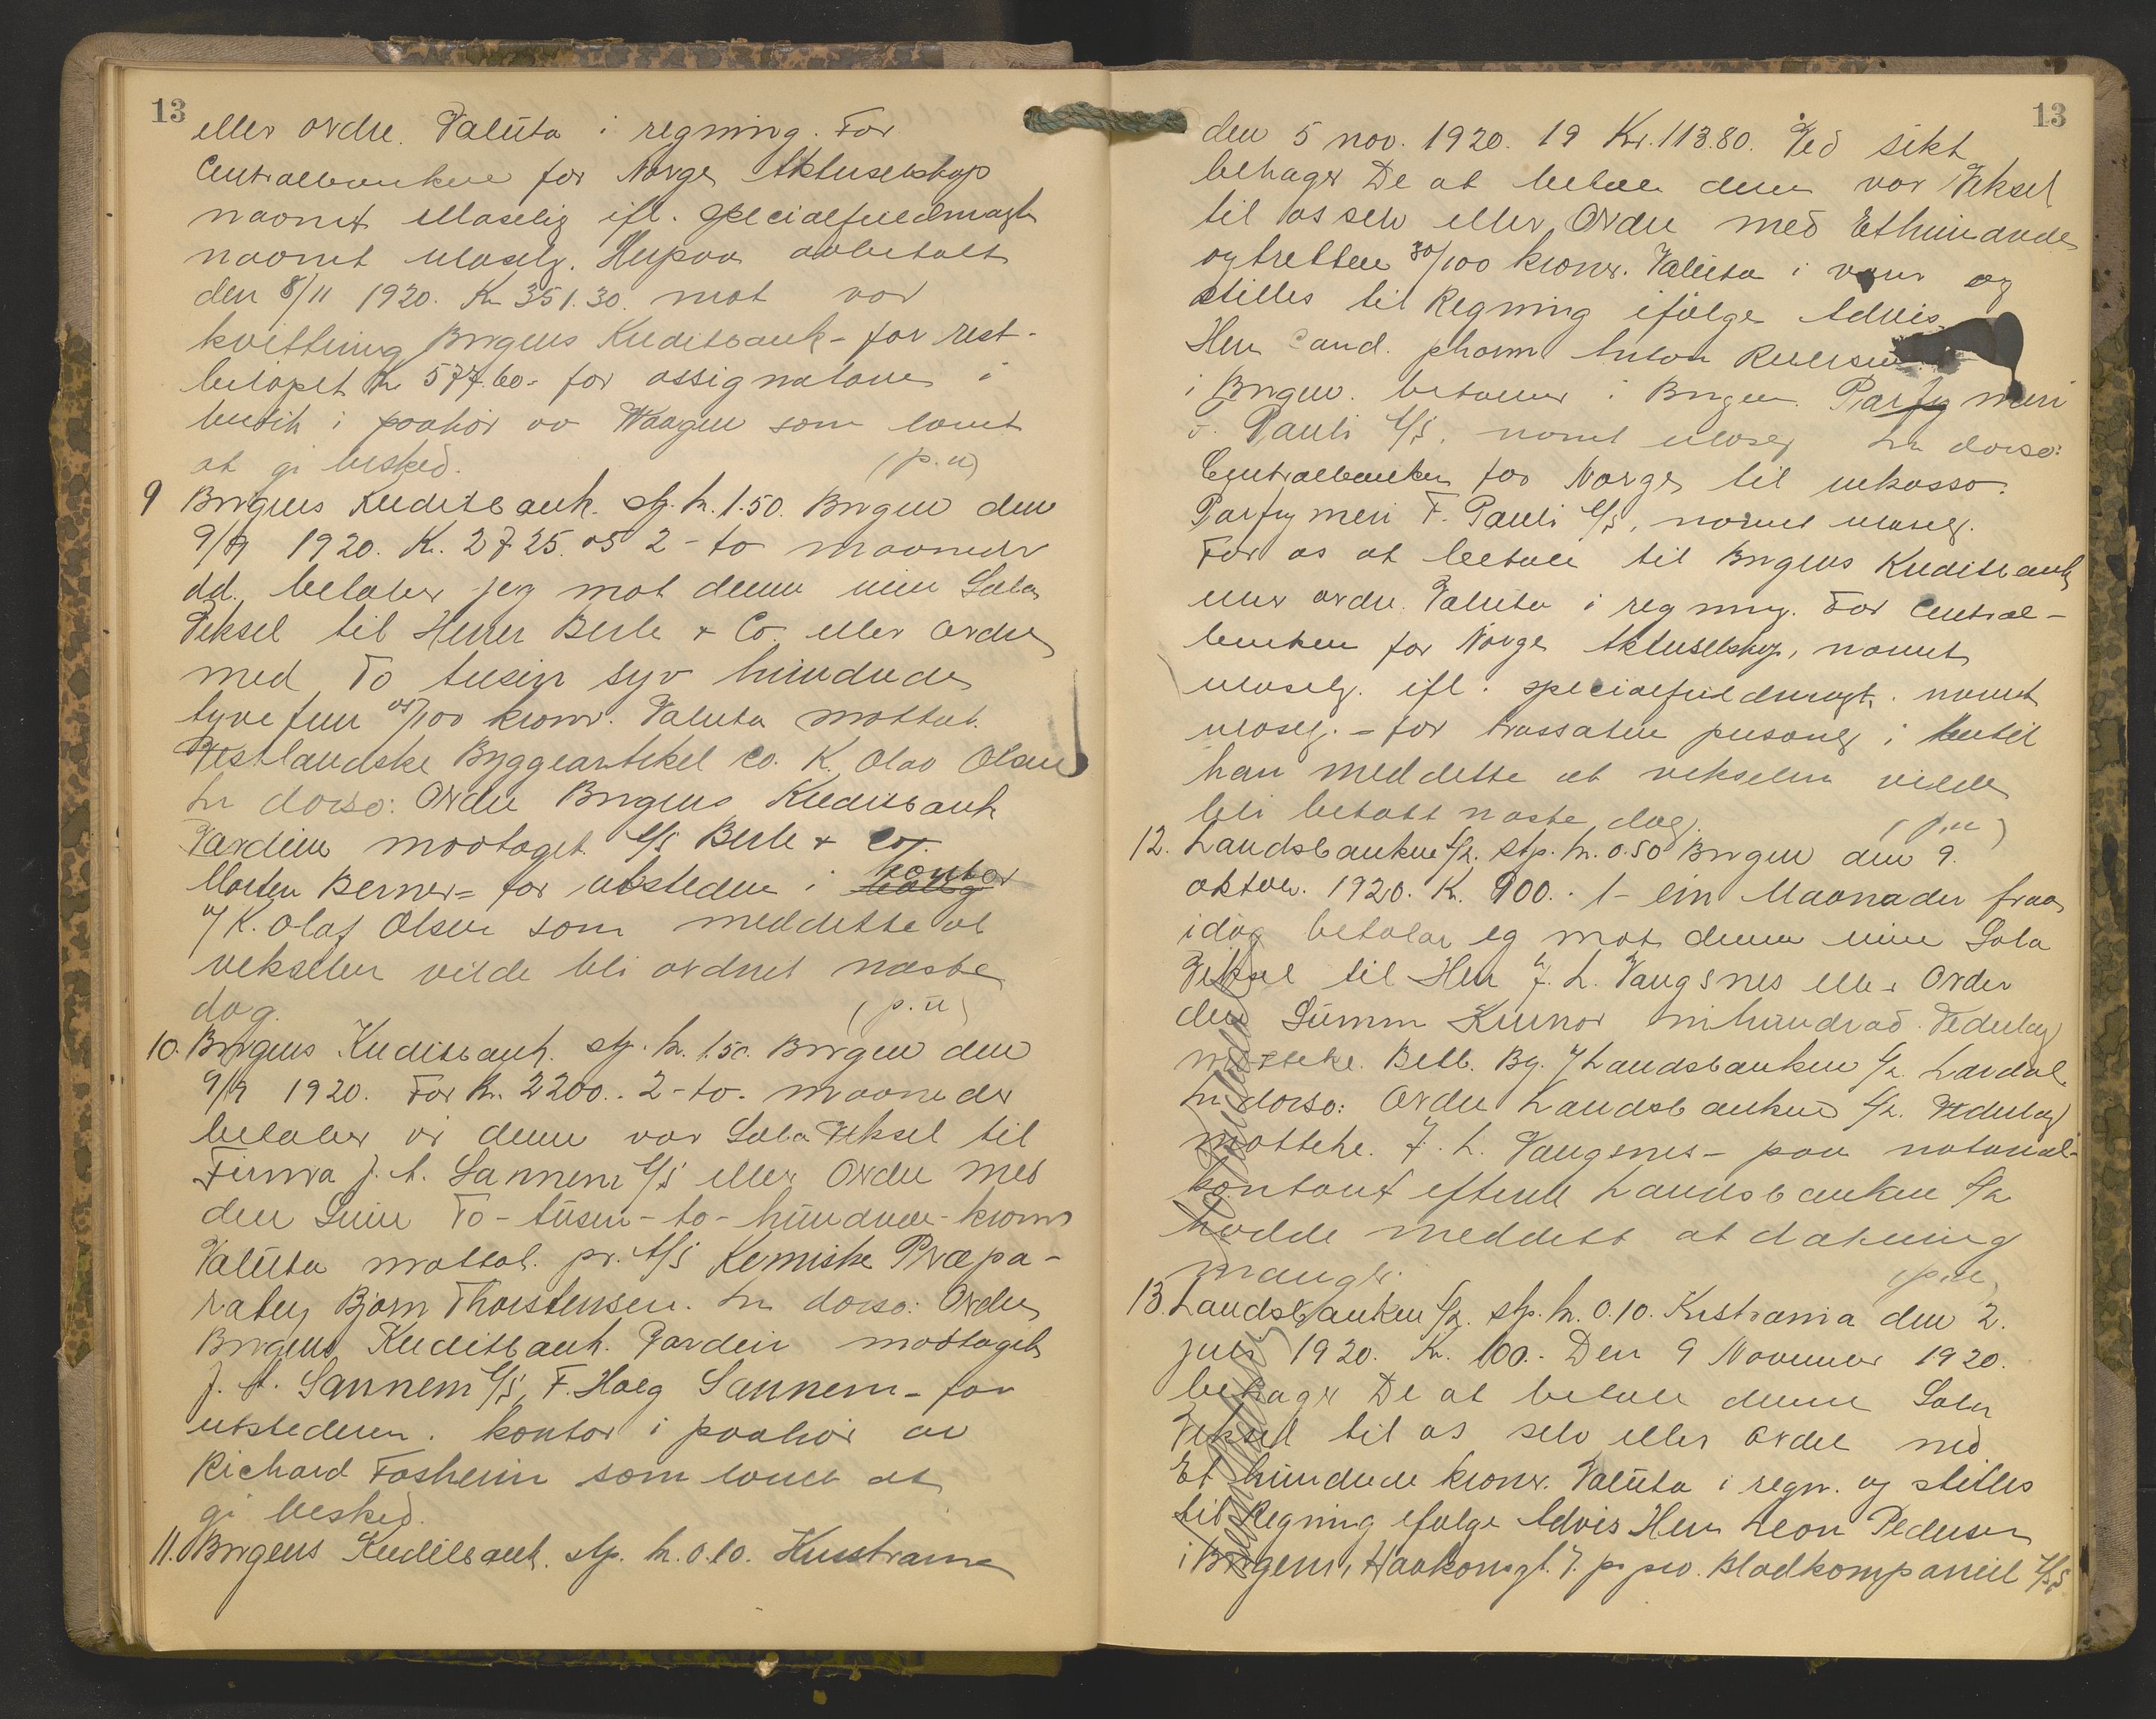 13
eller ordre. Valuta i regning. For
Centralbanken for Norge Aktieselskap
navnet ulæselig ifl. specialfuldmagt
navnet ulæselg. Herpaa avbetalt
den 8/11 1920. Kr 351.30. mot vor
kvittering Bergens Kreditbank - for rest-
beløpet kr 577.60 - for assignatens i
butik i paahør av Waagen som lovet
at gi besked. (p.u)
9 Bergens Kreditbank. stp. kr. 1.50. Bergen den
9/9 1920. Kr. 2725.05 2 - to maaneder
dd. betaler jeg mot denne min Sola
Veksel til Herrer Berle & Co. eller ordre
med To tusen syv hundrede
tyvefem 05/100 kroner. Valuta mottat.
Vestlandske Byggeartikel Co. K. Olav Olsen
In dorso: Ordre Bergens Kreditbank
Værdien modtaget A/S Berle & Co.
Morten Berner = for utstederen i kontor
v/ K. Olaf Olsen som meddelte at
vekselen vilde bli ordnet næste
dag. (p.u)
10. Bergens Kreditbank. stp. kr. 1.50. Bergen den
9/9 1920. For kr. 2200.. 2 - to - maaneder
betaler vi denne vor Sola Veksel til
Firma J. A. Sannem A/S eller Ordre med
den Sum To - tusen - to - hundrede - kroner
Valuta mottat. pr. A/S Kemiske Præpa-
rater, Bjørn Thorstensen. In dorso: Ordre
Bergens Kreditbank. Værdien modtaget
J. A. Sannem A/S, F. Hoeg Sannem - for
utstederen. kontor i paahør av
Richard Fosheim som lovet at
gi besked.
11. Bergens Kreditbank. stp. kr. 0.10. Kristiania
13
den 5 nov. 1920. 19 Kr. 113.80. Ved sikt
behager De at betale denne vor Veksel
til os selv eller Ordre med Ethundrede
ogtretten 80/100 kroner. Valuta i varer og
stilles til Regning ifølge Advis
Herr Cand. pharm Anton
i Bergen. betales i Bergen. Parfymeri
F. Pauli A/S. navnet ulæselg In dorso:
Centralbanken for Norge til inkasso.
Parfymeri F. Pauli A/S, navnet ulæselg.
For os at betale til Bergens Kreditbank
eller ordre. Valuta i regning. For Central-
banken for Norge Aktieselskap, navnet
ulæselg. ifl. specialfuldmagt. navnet
ulæselg. - for trassaten personlg i butik
han meddelte at vekselen vilde
bli betalt næste dag. (p.u)
12. Landsbanken A/L. stp. kr. 0.50 Bergen den 9.
oktober. 1920. Kr. 900.- 1 - ein Maanader fraa
idag betalar eg mot denne min Sola
Veksel til Herr J. L. Vangsnes eller Order
den Summ Krunor nihundrad. Vederlag
motteke. Betb. Bg. v/ Landsbanken A/L. Lærdal.
In dorso: Ordre Landsbanken A/L. Vederlag
motteke. J. L. Vangsnes - paa notarial-
kontoret efterat Landsbanken A/L
hadde meddelt at dækning
mangler. (p.u)
13. Landsbanken A/L. stp. kr. 0.10. Kristiania den 2.
juli 1920. Kr. 100.- Den 9 November 1920.
behager De at betale denne Sola
Veksel til os selv eller ordre med
Et hundrede kroner. Valuta i regn. og stilles
til Regning ifølge Advis Herr Leon Pedersen
i Bergen, Haakonsgt. 7. pr. pro. Bladkompaniet A/S,